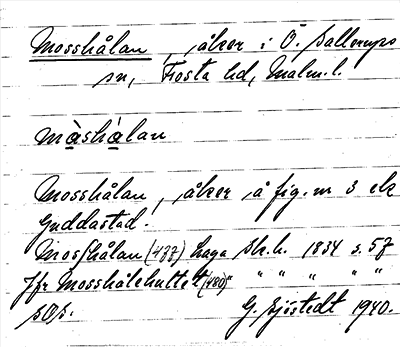 Mosshålan, åker i Ö. Sallerups
sn, Frosta hd, Malm. l.
màshàlan
Mosshålan, åker å fig. nr 3 etc
Guddastad.
Mosshålan (477) Laga sk. h. 1834 s. 57
Jfr Mosshålehultet (480) " " " " " "
sOs.
G. Sjöstedt 1940.